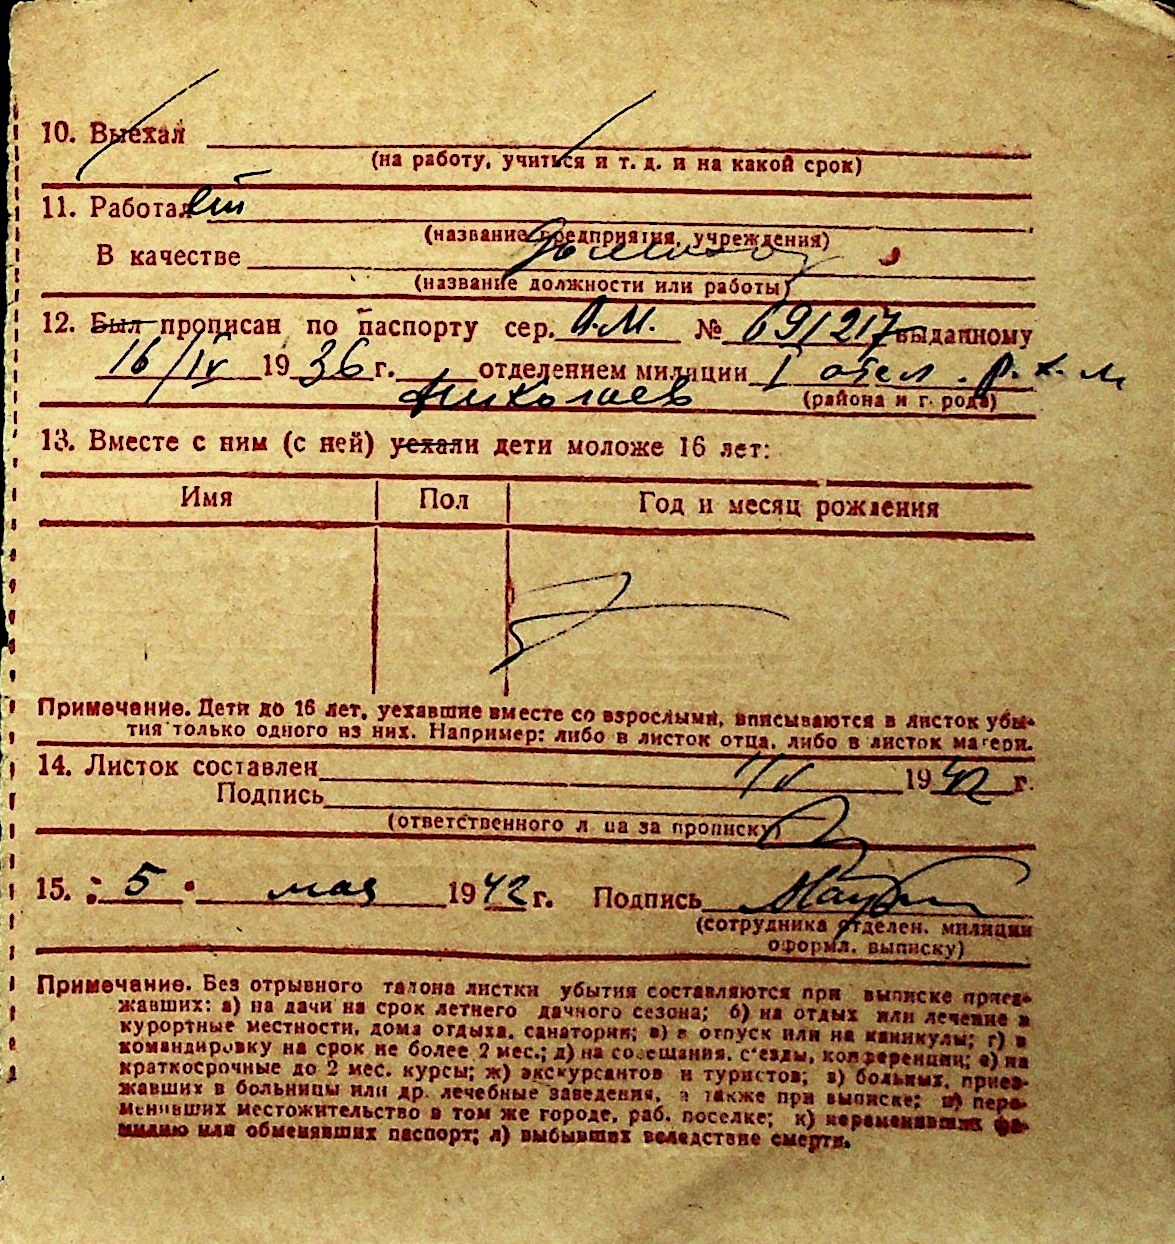 10. Выехал
(на работу, учиться и т. д. и на какой срок)
11. Работает
(название предприятия, учреждения)
В качестве
(название должности или работы)
12. Был прописан по паспорту сер. А.М. № 691217 выданному
16/IV 1936 г. отделением милиции I отел. р.к.м
Николаев (района и города)
13. Вместе с ним (с ней) уехали дети моложе 16 лет:
Имя Пол Год и месяц рождения
Примечание. Дети до 16 лет, уехавшие вместе со взрослыми, вписываются в листок убы-
тия только одного из них. Например: либо в листок отца, либо в листок матери.
14. Листок составлен 1942 г.
Подпись
(ответственного лица за прописку)
15. 5 мая 1942 г. Подпись
(сотрудника отделен. милиции
оформл. выписку)
Примечание. Без отрывного талона листки убытия составляются при выписке приез-
жавших: а) на дачи на срок летнего дачного сезона; б) на отдых или лечение в
курортные местности, дома отдыха, санатории; в) в отпуск или на каникулы; г) в
командировку на срок не более 2 мес.; д) на совещания, с'езды, конференции; е) на
краткосрочные до 2 мес. курсы; ж) экскурсантов и туристов; з) больных, приез-
жавших в больницы или др. лечебные заведения, а также при выписке; и) пере-
менивших местожительство в том же городе, раб. поселке; к) переменивших фа-
милию или обменявших паспорт; л) выбывших вследствие смерти.